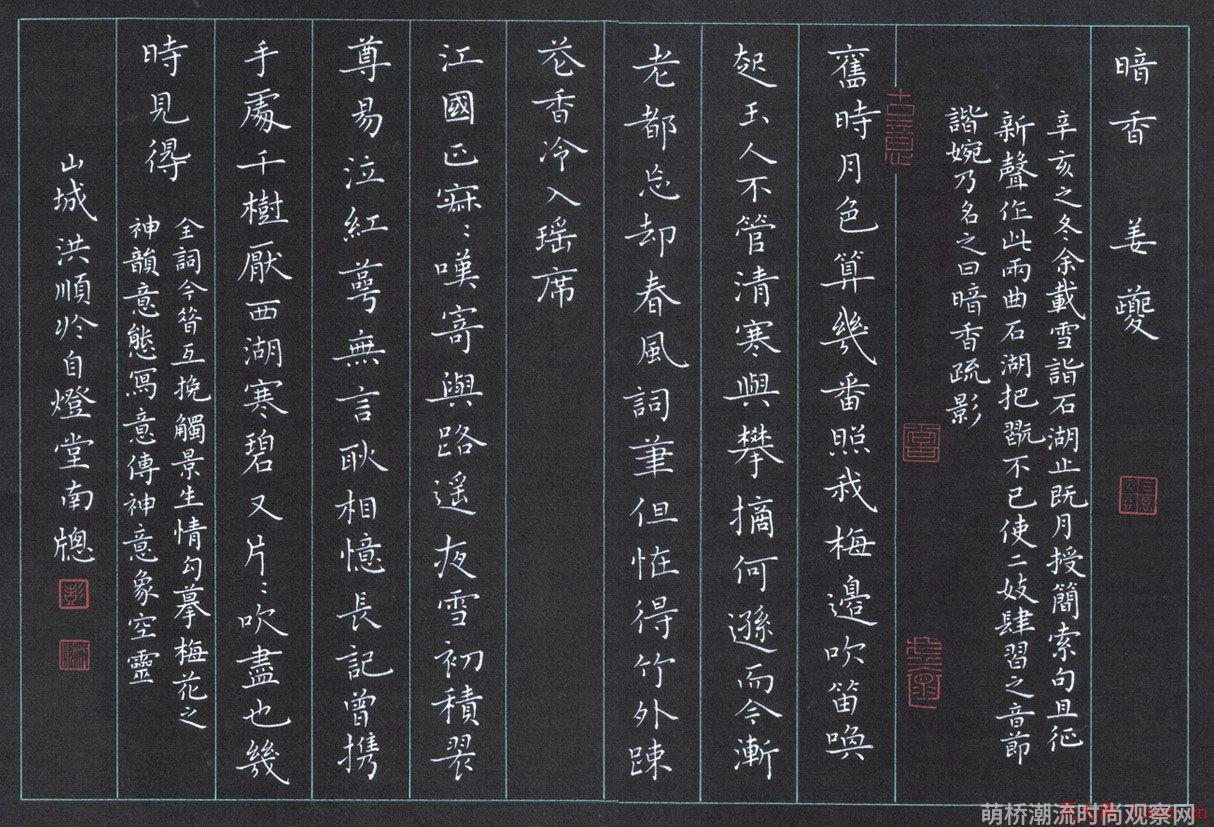 暗香 姜夔
辛亥之冬余載雪詣石湖止既月授簡索句且征
新聲作此兩曲石湖把翫不已使二妓肆習之音節
諧婉乃名之曰暗香疏影
舊時月色算幾番照我梅邊吹笛喚
起玉人不管清寒與攀摘何遜而今漸
老都忘却春風詞筆但恠得竹外疎
花香冷入瑶席
江國正寂：嘆寄與路遥夜雪初積翠
尊易泣紅萼無言耿相憶長記曾携
手處千樹壓西湖寒碧又片：吹盡也幾
時見得
全詞今昔互挽觸景生情勾摹梅花之
神韻意態寫意傳神意象空靈
山城洪順 自燈堂南牕
古意
萌桥潮流时尚观察网